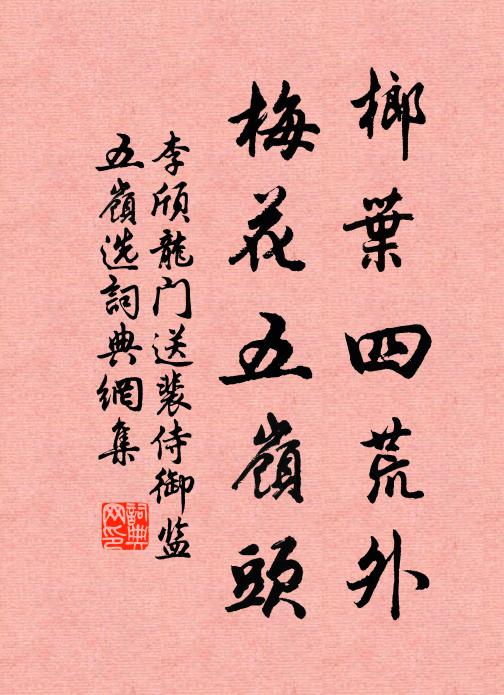 榔葉四荒外
梅花五嶺頭
李頎龍门送裴侍御监
五嶺选詞典網集
詞典网印